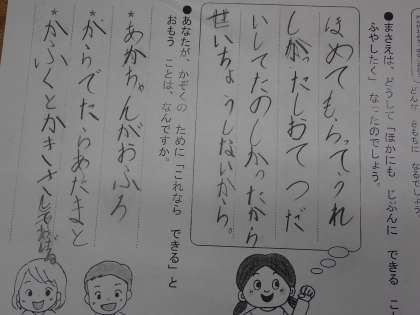 ●まさえは、どうして「ほかにも じぶんに できる こ
ふやしたく」なったのでしょう。
ほめてもらってうれ
しかったしおてつだ
いしてたのしかったから
せいちょうしないから。
●あなたが、かぞくの ために「これなら できる」と
おもう ことは、なんですか。
*あかちゃんがおふろ
*からでたらあたまと
*かふくとかきさしてあげる